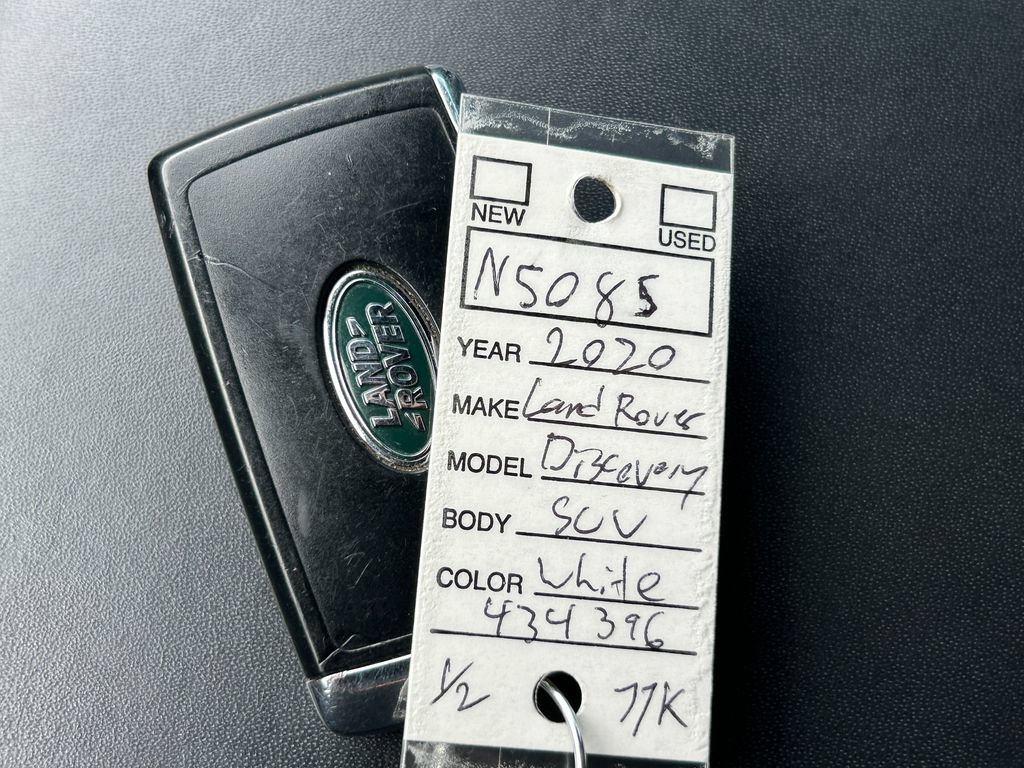 LAND
ROVER
NEW
USED
N5085
YEAR 2020
MAKE Land Rover
MODEL Discovery
BODY SUV
COLOR White
434396
1/2 77K